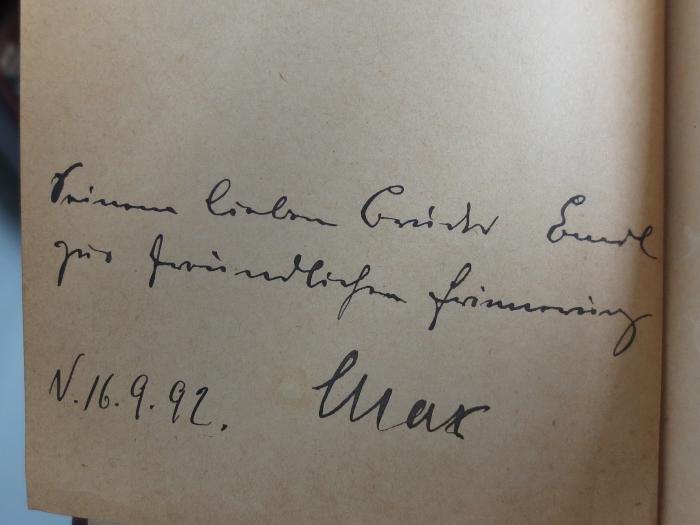 Seinem lieben Bruder Emil
zur freundlichen Erinnerung
N. 16.9.92. Max